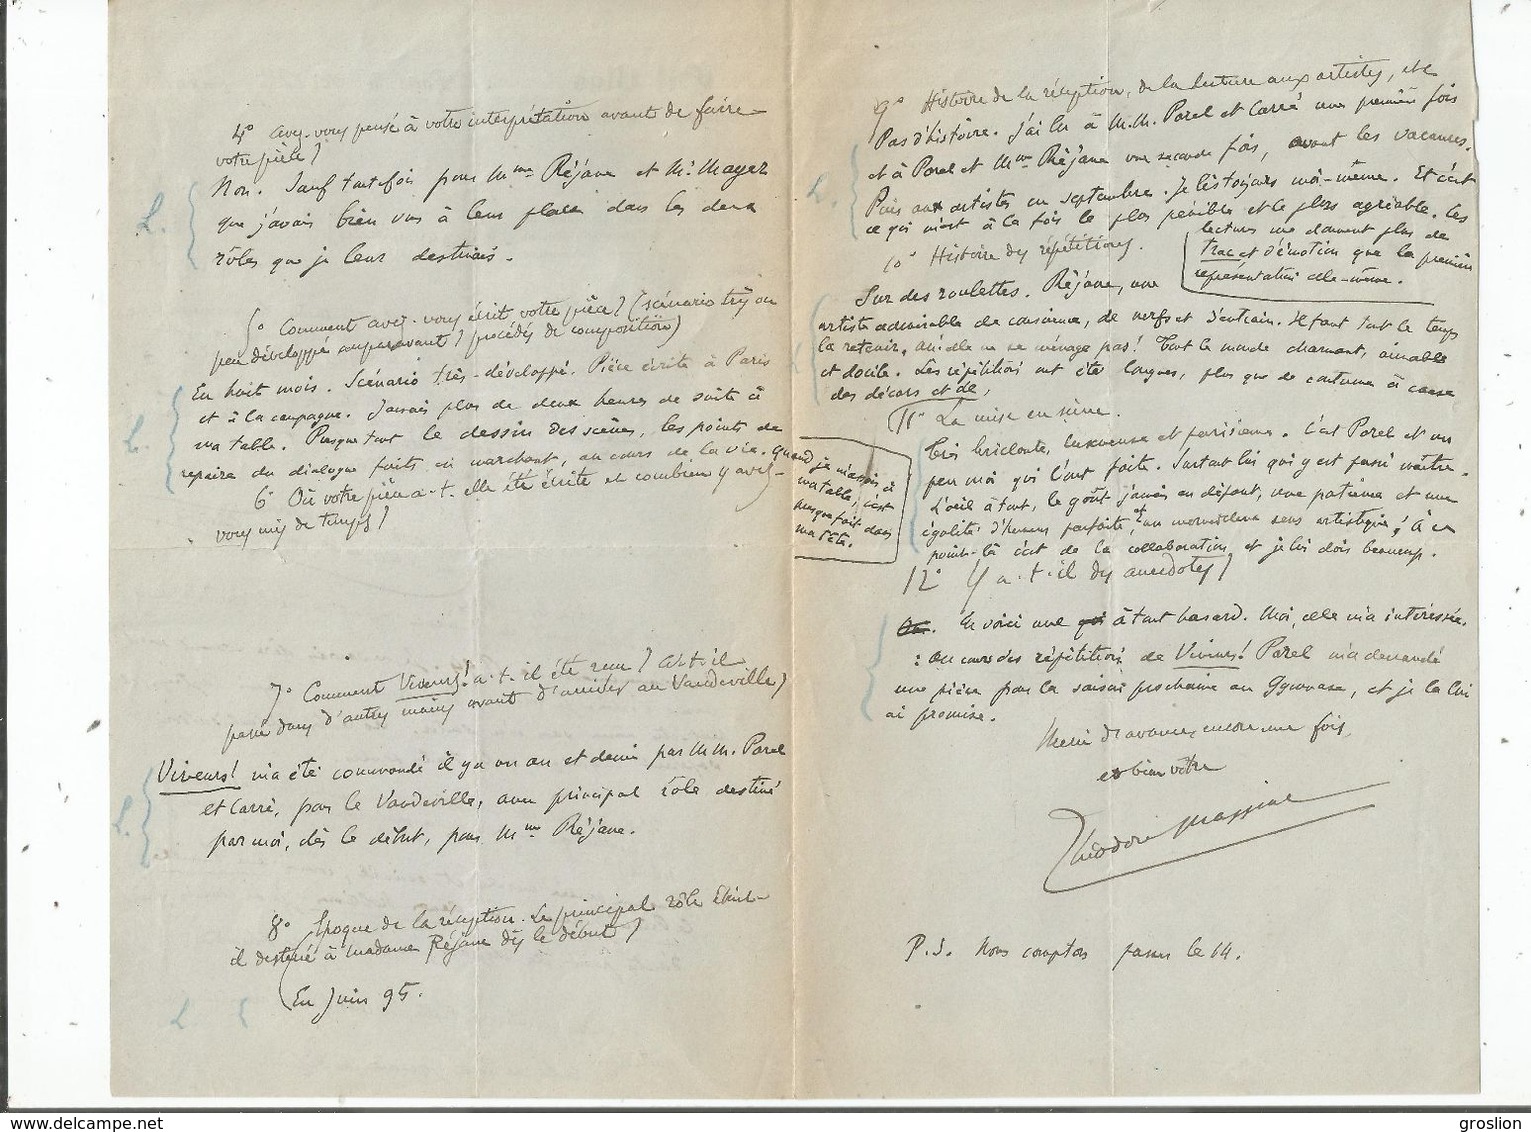 4° Avez-vous pensé à votre interprétation avant de faire
votre pièce ?
Non. Sauf toutefois pour Mme Réjane et Mr Mayer
que j'avais bien vus à leur place dans les deux
rôles que je leur destinais.
5° Comment avez-vous écrit votre pièce ? (scénario très ou
peu développé auparavant ? procédés de composition)
En huit mois. Scénario très-développé. Pièce écrite à Paris
et à la campagne. Jamais plus de deux heures de suite à
ma table. Presque tout le dessin des scènes, les points de
repaire du dialogue faits en marchant, au cours de la vie. Quand
je m'assois à
ma table, c'est
presque fait dans
ma tête.
6° Où votre pièce a-t-elle été écrite et combien y avez-
vous mis de temps ?
7° Comment Viveurs! a-t-il été reçu ? A-t-il
passé dans d'autres mains avant d'arriver au Vaudeville ?
Viveurs! m'a été commandé il y a un an et demi par MM. Porel
et Carré, pour le Vaudeville, avec principal rôle destiné
par moi, dès le début, pour Mme Réjane.
8° Epoque de la réception. Le principal rôle était-
il destiné à madame Réjane dès le début ?
En Juin 95.
L.
L.
L.
L
9° Histoire de la réception, de la lecture aux artistes, etc
Pas d'histoire. J'ai lu à M.M. Porel et Carré une première fois
et à Porel et Mme Réjane une seconde fois, avant les vacances.
Puis aux artistes en septembre. Je lis toujours moi-même. Et c'est
ce qui m'est à la fois le plus pénible et le plus agréable. Ces
lectures me donnent plus de
trac et d'émotion que la première
représentation elle-même.
10° Histoire des répétitions.
Sur des roulettes. Réjane, une
artiste admirable de conscience, de nerfs et d'entrain. Il faut tout le temps
la retenir. Ah! elle ne se ménage pas! Tout le monde charmant, aimable
et docile. Les répétitions ont été longues, plus que de coutume à cause
des décors et de,
11° La mise en scène.
Très brillante, luxueuse et parisienne. C'est Porel et un
peu moi qui l'ont faite. Surtout lui qui y est passé maître.
L'oeil à tout, le goût jamais en défaut, une patience et une
égalité d'humeur parfaite, et un merveilleux sens artistique; à ce
point-là c'est de la collaboration et je lui dois beaucoup.
12° Y a-t-il des anecdotes ?
En voici une à tout hasard. Moi, elle m'a intéressée.
: au cours des répétitions de Viveurs! Porel m'a demandé
une pièce pour la saison prochaine au Gymnase, et je la lui
ai promise.
Merci d'avance, encore une fois,
et bien vôtre
L.
P.S. Nous comptons passer le 14.
groslion